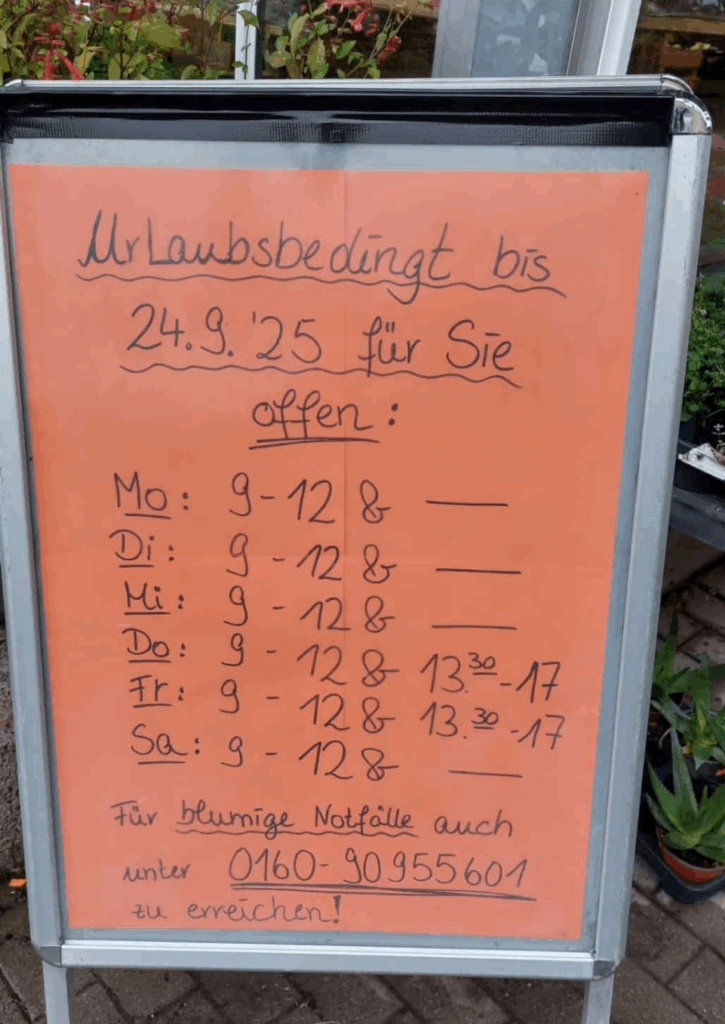 Urlaubsbedingt bis
24.9.'25 für Sie
offen:
Mo: 9-12 & —
Di: 9-12 & —
Mi: 9-12 & —
Do: 9-12 & 13.30-17
Fr: 9-12 & 13.30-17
Sa: 9-12 & —
Für blumige Notfälle auch
unter 0160-90955601
zu erreichen!